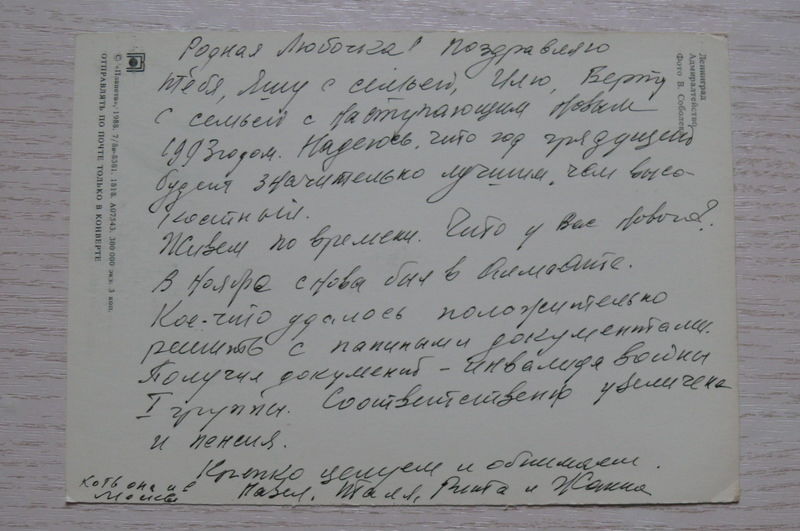 Родная Любочка! Поздравляю
тебя, Яшу с семьей, Илю, Берту
с семьей с наступающим Новым
1993 годом. Надеюсь, что год грядущий
будет значительно лучшим, чем высо-
костный.
Живем по времени. Что у Вас нового?
В ноябре снова был в Алма-Ате.
Кое-что удалось положительно
решить с папиными документами.
Получил документ - инвалида войны
I группы. Соответственно увеличена
и пенсия.
Крепко целуем и обнимаем.
Павел, Талл, Рита и Жанна
Ленинград
Адмиралтейство
Фото В. Соболева
© «Планета», 1988. 7/8в-8361; 1818. А07543. 300 000 экз. 3 коп.
ОТПРАВЛЯТЬ ПО ПОЧТЕ ТОЛЬКО В КОНВЕРТЕ